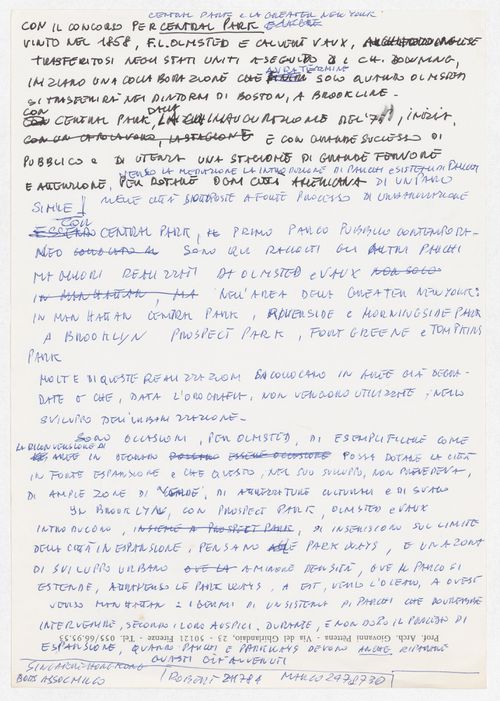 CENTRAL PARK E LA GREATER NEW YORK
CON IL CONCORSO PER CENTRAL PARK
VINTO NEL 1858, F.L. OLMSTED E CALVERT VAUX,
TRASFERITOSI NEGLI STATI UNITI A SEGUITO DI DOWNING,
INIZIANO UNA COLLABORAZIONE CHE TERMINA SOLO QUANDO OLMSTED
SI TRASFERIRÀ NEI DINTORNI DI BOSTON, A BROOKLINE.
CON CENTRAL PARK, DALLA INAUGURAZIONE DEL, INIZIA,
CON UN CAPOLAVORO, LA STAGIONE E CON GRANDE SUCCESSO DI
PUBBLICO E DI UTENZA UNA STAGIONE DI GRANDE FERVORE
VERSO LA INTRODUZIONE DI PARCHI E SISTEMI DI PARCHI
E ATTENZIONE, PER DOTARE OGNI CITTÀ AMERICANA DI UN PARCO
SIMILE NELLE CITTÀ SOTTOPOSTE A FORTE PROCESSO DI URBANIZZAZIONE
CON
ESSENDO CENTRAL PARK, IL PRIMO PARCO PUBBLICO CONTEMPORA-
NEO SONO QUI RACCOLTI GLI ALTRI PARCHI
MAGGIORI REALIZZATI DA OLMSTED E VAUX NON SOLO
IN MANHATTAN, MA NELL'AREA DELLA GREATER NEW YORK:
IN MANHATTAN CENTRAL PARK, RIVERSIDE E MORNINGSIDE PARK
A BROOKLYN PROSPECT PARK, FORT GREENE E TOMPKINS
PARK
MOLTE DI QUESTE REALIZZAZIONI SI COLLOCANO IN AREE GIÀ DEGRA-
DATE O CHE, DATA L'OROGRAFIA, NON VENGONO UTILIZZATE NELLO
SVILUPPO DELL'URBANIZZAZIONE.
SONO OCCASIONI, PER OLMSTED, DI ESEMPLIFICARE COME
LA DIVERSIONE DI
UN DISEGNO POSSANO ESSERE OCCASIONE POSSA DOTARE LA CITTÀ
IN FORTE ESPANSIONE E CHE QUESTO, NEL SUO SVILUPPO, NON PREVEDEVA,
DI AMPLE ZONE DI "VERDE", DI ATTREZZATURE CULTURALI E DI SVAGO
IN BROOKLYN, CON PROSPECT PARK, OLMSTED E VAUX
INTRODUCONO, INSIEME A PROSPECT PARK, DI INSERIRSI SUL LIMITE
DELLA CITTÀ IN ESPANSIONE, PENSANO ALLE PARKWAYS, E UNA ZONA
DI SVILUPPO URBANO OVE LA A MINORE DENSITÀ, OVE IL PARCO SI
ESTENDE, ATTRAVERSO LE PARKWAYS, A EST, VERSO L'OCEANO, A OVEST
VERSO MANHATTAN: I GERMI DI UN SISTEMA DI PARCHI CHE DOVREBBE
INTERVENIRE, SECONDO I LORO AUSPICI, DURANTE, E NON DOPO IL PROCESSO DI
Prof. Arch. Giovanni Pettena - Via del Ghirlandaio, 23 - 50121 Firenze - Tel. 055/66.93.35
ESPANSIONE, QUANDO PARCHI E PARKWAYS DEVONO ANCHE RIPARARE
GUASTI GIÀ AVVENUTI
SINGAPORE HONG KONG
BOTTS ASSOC MILCO ROBERT 211784 MARCO 2479730